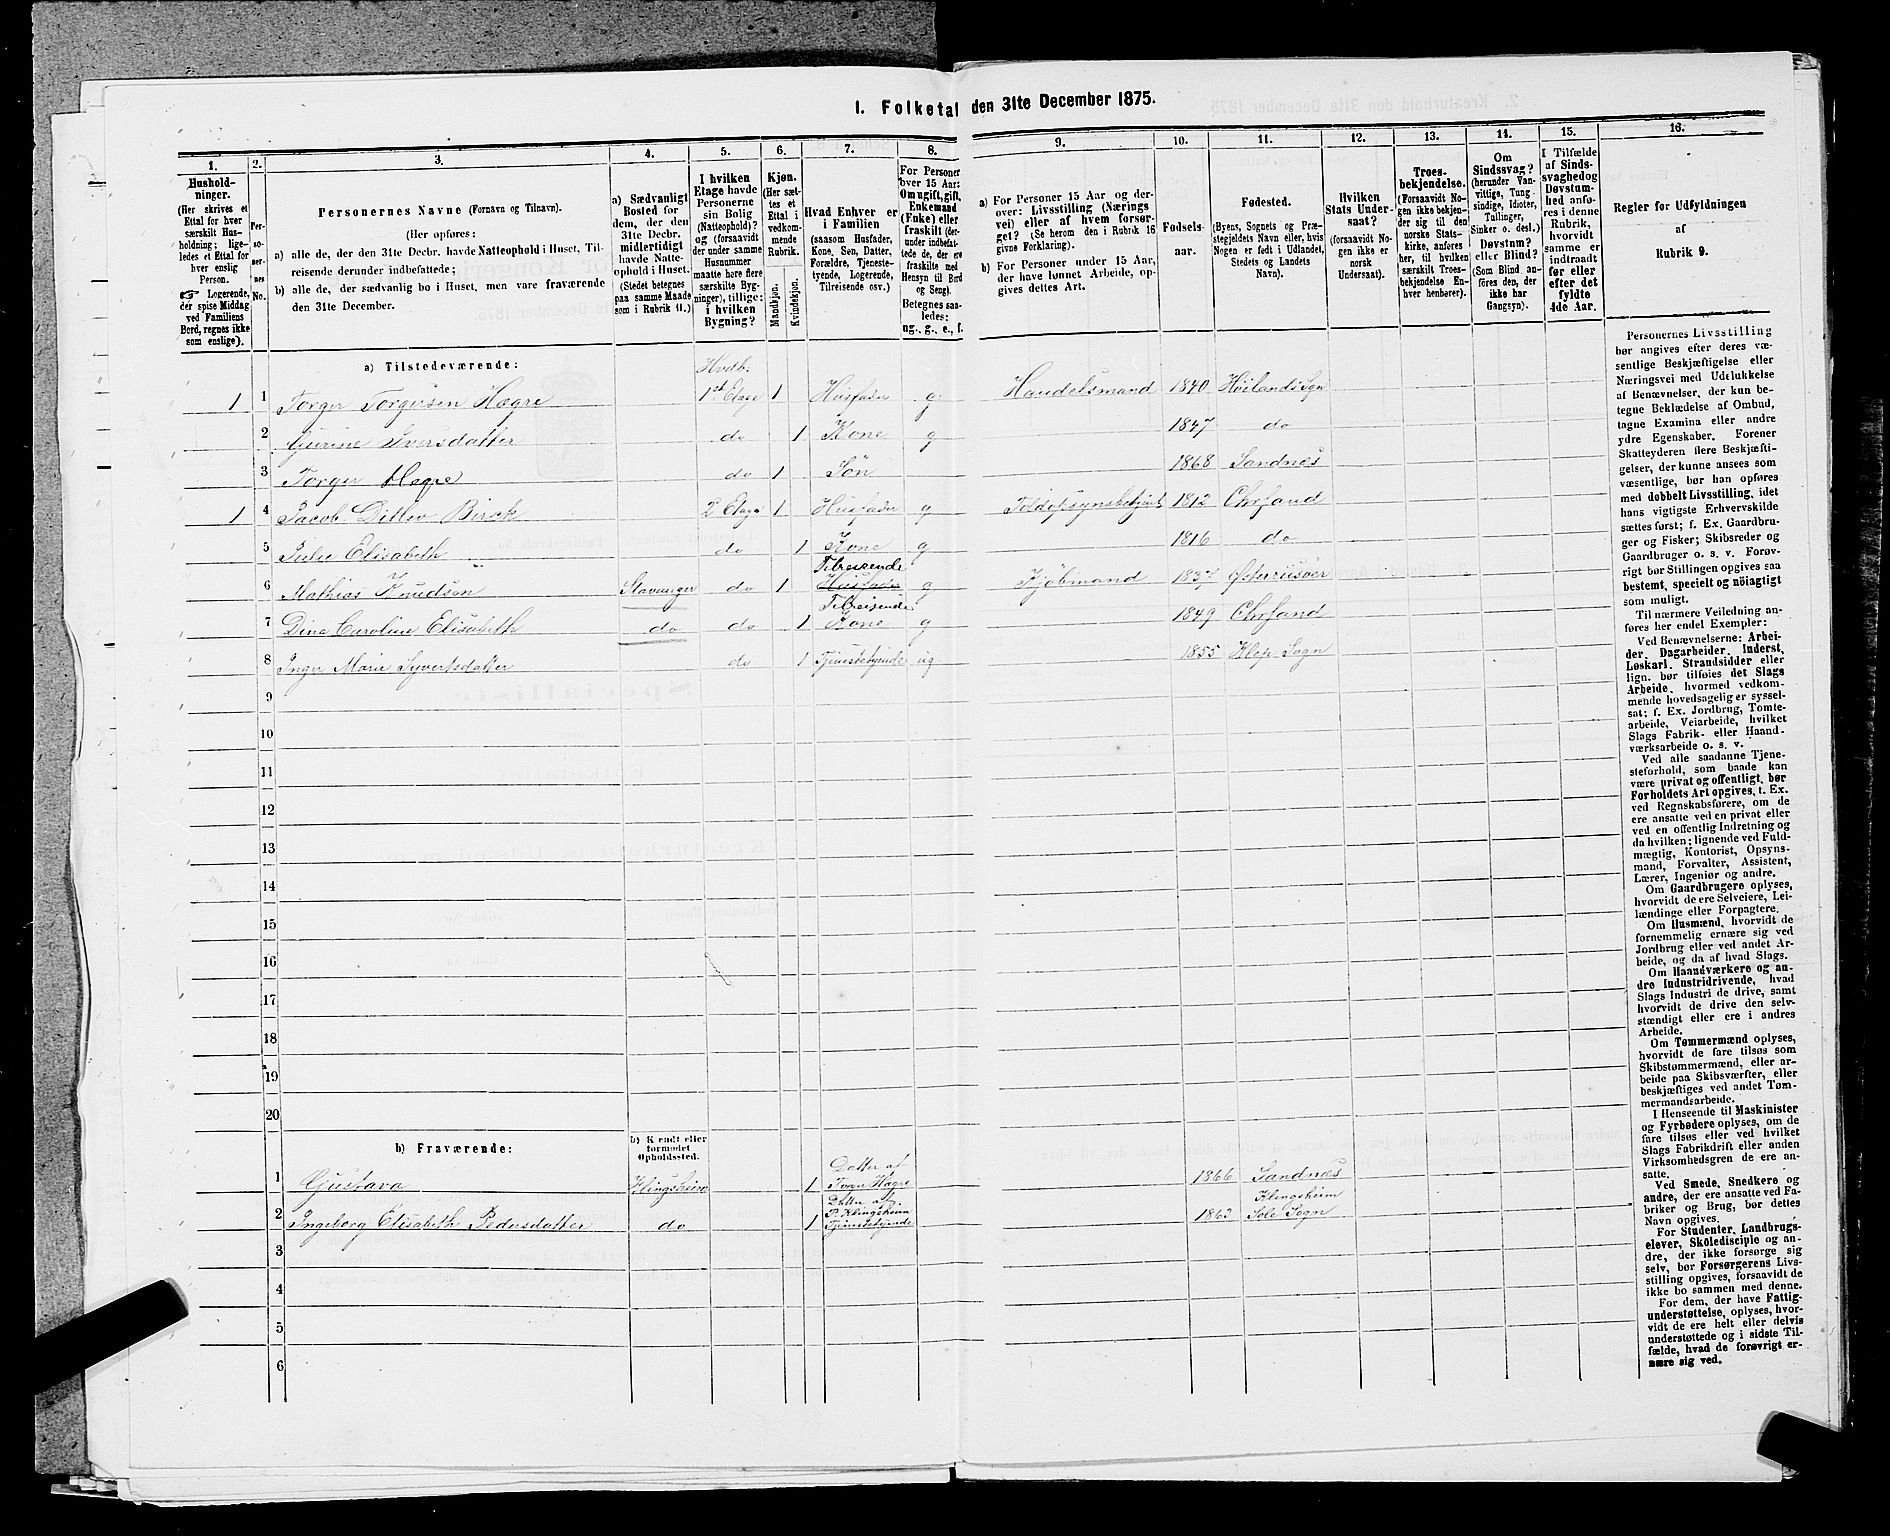 1. Folketal den 31te December 1875.
1. 2. 3. 4. 5. 6. 7. 8. 9. 10. 11. 12. 13. 14. 15. 16.
Hushold-
ninger.
(Her skrives et
Ettal for hver
særskilt Hus-
holdning; lige-
ledes et Ettal for
hver enslig
Person.
☞ Logerende,
der spise Middag
ved Familiens
Bord, regnes ikke
som enslige).
Per-
so-
ner-
nes
No.
Personernes Navne (Fornavn og Tilnavn).
(Her opføres:
a) alle de, der den 31te Decbr. havde Natteophold i Huset, Til-
reisende derunder indbefattede;
b) alle de, der sædvanlig bo i Huset, men vare fraværende
den 31te December.
a) Sædvanligt
Bosted for
dem, der den
31te Decbr.
midlertidigt
havde Natte-
ophold i Huset.
(Stedet betegnes
paa samme Maade
som i Rubrik 11.)
I hvilken
Etage havde
Personerne
sin Bolig
(Natteophold)?
og (forsaavidt
der under samme
Husnummer
maatte høre flere
særskilte Byg-
ninger), tillige:
i hvilken
Bygning?
Kjøn.
(Her sæt-
tes et
Ettal i
vedkom-
mende
Rubrik.
Mandkjøn.
Kvindekjøn.
Hvad Enhver er
i Familien
(saasom Husfader,
Kone, Søn, Datter,
Forældre, Tjeneste-
tyende, Logerende,
Tilreisende osv.)
For Personer
over 15 Aar:
Om ugift, gift,
Enkemand
(Enke) eller
fraskilt (der-
under indbefat-
tede de, der ere
fraskilte med
Hensyn til Bord
og Seng).
Betegnes saa-
ledes:
ug., g., e., f.
a) For Personer 15 Aar og der-
over: Livsstilling (Nærings-
vei) eller af hvem forsør-
get? (Se herom den i Rubrik 16
givne Forklaring).
b) For Personer under 15 Aar,
der have lønnet Arbeide, op-
gives dettes Art.
Fødsels-
aar.
Fødested.
(Byens, Sognets og Præ-
stegjeldets Navn eller, hvis
Nogen er født i Udlandet,
Stedets og Landets
Navn).
Hvilken
Stats Under-
saat?
(forsaavidt No-
gen ikke er
norsk
Undersaat).
Troes-
bekjendelse.
(Forsaavidt No-
gen ikke bekjen-
der sig til den
norske Stats-
kirke, anføres
her, til hvilken
særskilt Troes-
bekjendelse En-
hver henhører).
Om
Sindssvag?
(herunder Van-
vittige, Tung-
sindige, Idioter,
Tullinger,
Sinker o. desl.)
Døvstum?
eller Blind?
(Som Blind an-
føres den, der
ikke har
Gangsyn).
I Tilfælde
af Sinds-
svaghed og
Døvstum-
hed anfø-
res i denne
Rubrik,
hvorvidt
samme er
indtraadt
før eller
efter det
fyldte
4de Aar.
Regler for Udfyldningen
af
Rubrik 9.
a) Tilstedeværende: Hvdb.
1 1 Torger Torgersen Høgre 1st Etage 1 Husfader g. Handelsmand 1840 Høilands Sgn
2 Gurine Iversdatter do 1 Kone g 1847 do
3 Torger Høgre do 1 Søn 1868 Sandnæs
1 4 Jacob Ditlev Birck 2 Etage 1 Husfader g Toldopsynsbetjent 1812 Chrsand
5 Julie Elisabeth do 1 Kone g 1816 do
Tilreisende
6 Mathias Knudsen Stavanger do 1 Husfader g Kjøbmand 1837 Østerriisøer
Tilreisende
7 Dina Caroline Elisabeth do do 1 Kone g 1849 Chrsand
8 Inger Marie Syvertsdatter do 1 Tjenestetyende ug 1855 Klep Sogn
9
10
11
12
13
14
15
16
17
18
19
20
b) Fraværende:
b) Kjendt eller
formodet
Opholdssted.
Datter af
1 Gustava Klingsheim 1 Torger Høgre 1866 Sandnæs
Datter af
P. Klingsheim Klingsheim
2 Ingeborg Elisabeth Pedersdatter do 1 Tjenestetyende 1863 Sole Sogn
3
4
5
6
Personernes Livsstilling
bør angives efter deres væ-
sentlige Beskjæftigelse eller
Næringsvei med Udelukkelse
af Benævnelser, der kun be-
tegne Beklædelse af Ombud,
tagne Examina eller andre
ydre Egenskaber. Forener
Skatteyderen flere Beskjæfti-
gelser, der kunne ansees som
væsentlige, bør han opføres
med dobbelt Livsstilling, idet
hans vigtigste Erhvervskilde
sættes først; f. Ex. Gaardbru-
ger og Fisker; Skibsreder og
Gaardbruger o. s. v. Forøv-
rigt bør Stillingen opgives saa
bestemt, specielt og nöiagtigt
som muligt.
Til nærmere Veiledning an-
føres her endel Exempler:
Ved Benævnelserne: Arbei-
der, Dagarbeider, Inderst,
Løskarl, Strandsidder eller
lign. bør tilføies det Slags
Arbeide, hvormed vedkom-
mende hovedsagelig er syssel-
sat; f. Ex. Jordbrug, Tomte-
arbeide, Veiarbeide, hvilket
Slags Fabrik- eller Haand-
værksarbeide o. s. v.
Ved alle saadanne Tjene-
steforhold, som baade kan
være privat og offentligt, bør
Forholdets Art opgives, t. Ex.
ved Regnskabsførere, om de
ere ansatte ved en privat eller
ved en offentlig Indretning og
da hvilken; lignende ved Fuld-
mægtig, Kontorist, Opsyns-
mand, Forvalter, Assistent,
Lærer, Ingeniør og andre.
Om Gaardbrugere oplyses,
hvorvidt de ere Selveiere, Lei-
lændinge eller Forpagtere.
Om Husmænd, hvorvidt de
fornemmelig ernære sig ved
Jordbrug eller ved andet Ar-
beide, og da af hvad Slags.
Om Haandværkere og an-
dre Industridrivende, hvad
Slags Industri de drive, samt
hvorvidt de drive den selv-
stændigt eller ere i andres
Arbeide.
Om Tømmermænd oplyses,
hvorvidt de fare tilsøs som
Skibstømmermænd, eller ar-
beide paa Skibsværfter, eller
beskjæftiges ved andet Tøm-
mermandsarbeide.
I Henseende til Maskinister
og Fyrbødere oplyses, om de
fare tilsøs eller ved hvilket
Slags Fabrikdrift eller anden
Virksomhedsgren de ere an-
satte.
Ved Smede, Snedkere og
andre, der ere ansatte ved Fa-
briker og Brug, bør dettes
Navn opgives.
For Studenter, Landbrugs-
elever, Skoledisciple og an-
dre, der ikke forsørge sig
selv, bør Forsørgerens Livs-
stilling opgives, forsaavidt de
ikke bo sammen med denne.
For dem, der have Fattig-
understøttelse, oplyses, hvor-
vidt de ere helt eller delvis
understøttede og i sidste Til-
fælde, hvad de forøvrigt er-
nære sig ved.